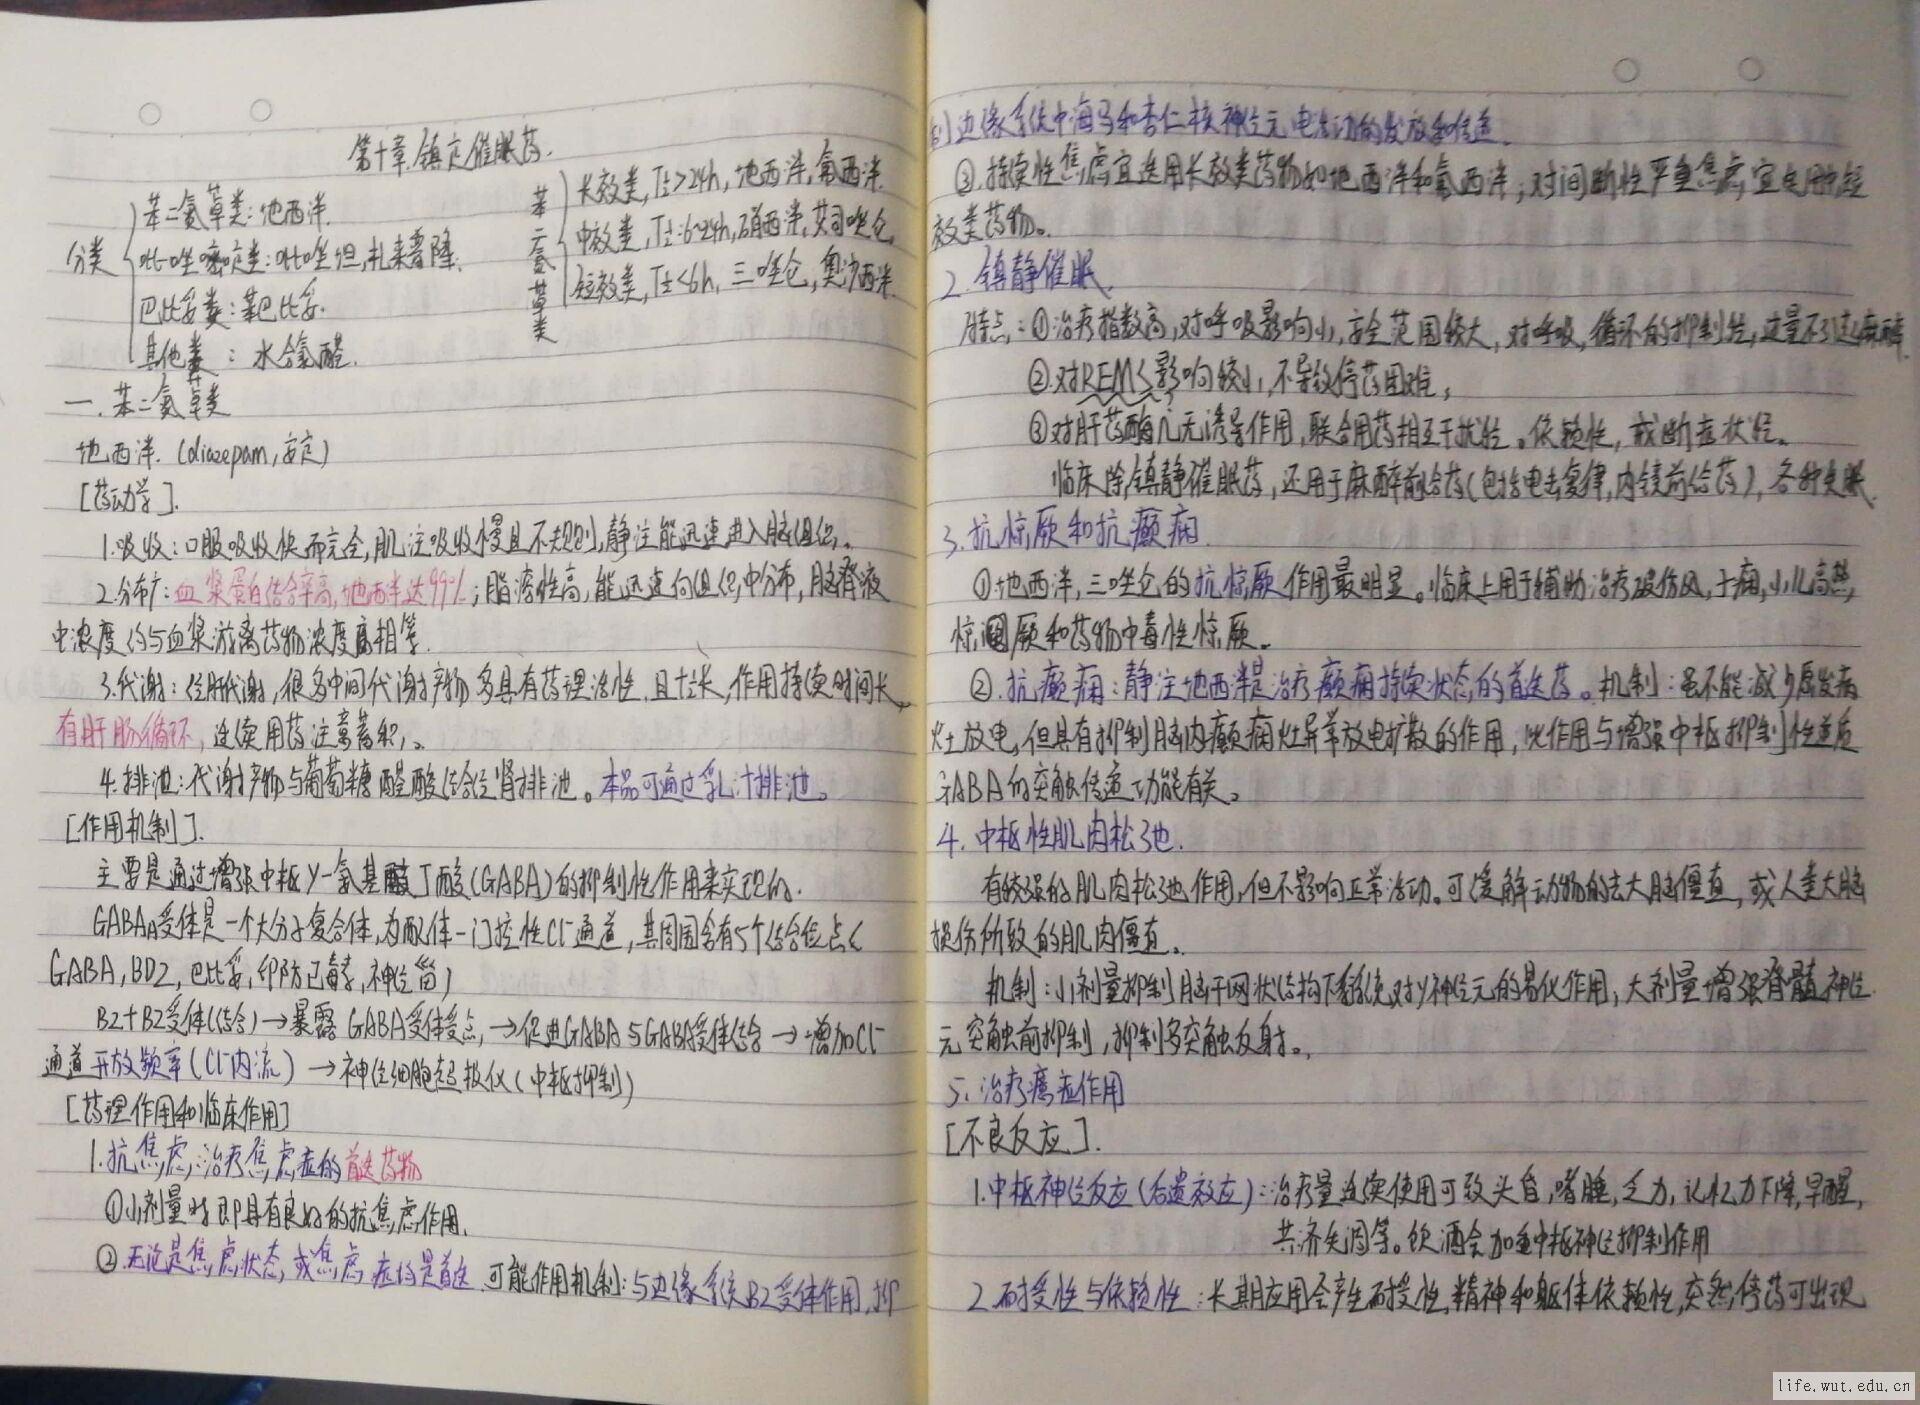 第十章.镇定催眠药.
分类
苯二氮䓬类:地西泮.
吡唑嘧啶类:吡唑坦,扎来普隆.
巴比妥类:苯巴比妥.
其他类:水合氯醛.
苯二氮䓬类
长效类,T½>24h,地西泮,氟西泮.
中效类,T½:6~24h,硝西泮,艾司唑仑,
短效类,T½<6h,三唑仑,奥沙西泮.
一.苯二氮䓬类
地西泮.(diazepam,安定)
[药动学].
1.吸收:口服吸收快而完全,肌注吸收慢且不规则,静注能迅速进入脑组织。
2.分布:血浆蛋白结合率高,地西泮达99%;脂溶性高,能迅速向组织中分布,脑脊液
中浓度约与血浆游离药物浓度相等.
3.代谢:经肝代谢,很多中间代谢产物多具有药理活性,且t½长,作用持续时间长,
有肝肠循环,连续用药注意蓄积。
4.排泄:代谢产物与葡萄糖醛酸结合经肾排泄。本品可通过乳汁排泄。
[作用机制].
主要是通过增强中枢γ-氨基丁酸(GABA)的抑制性作用来实现的.
GABAA受体是一个大分子复合体,为配体-门控性Cl⁻通道,其周围含有5个结合位点(
GABA,BDZ,巴比妥,印防己毒素,神经甾)
BZ+BZ受体(结合)→暴露GABA受体受点,→促进GABA与GABA受体结合→增加Cl⁻
通道开放频率(Cl⁻内流)→神经细胞超极化(中枢抑制)
[药理作用和临床作用]
1.抗焦虑,治疗焦虑症的首选药物
①小剂量时即具有良好的抗焦虑作用.
②无论是焦虑状态,或焦虑症均是首选.可能作用机制:与边缘系统BZ受体作用,抑
制边缘系统中海马和杏仁核神经元电活动的发放和传递.
③.持续性焦虑宜选用长效类药物如地西泮和氟西泮;对间断性严重焦虑,宜选用中短
效类药物。
2.镇静催眠.
特点:①治疗指数高,对呼吸影响小,安全范围较大,对呼吸,循环的抑制轻,过量不引起麻醉.
②.对REMS影响较小,不导致停药困难;
③对肝药酶几无诱导作用,联合用药相互干扰轻。依赖性,戒断症状轻。
临床除镇静催眠药,还用于麻醉前给药(包括电击复律,内镜前给药),各种失眠.
3.抗惊厥和抗癫痫
①地西泮,三唑仑的抗惊厥作用最明显。临床上用于辅助治疗破伤风,子痫,小儿高热,
惊厥和药物中毒性惊厥。
②.抗癫痫:静注地西泮是治疗癫痫持续状态的首选药。机制:虽不能减少原发病
灶放电,但具有抑制脑内癫痫灶异常放电扩散的作用,此作用与增强中枢抑制性递质
GABA的突触传递功能有关。
4.中枢性肌肉松弛.
有较强的肌肉松弛作用,但不影响正常活动。可缓解动物的去大脑僵直,或人类大脑
损伤所致的肌肉僵直。
机制:小剂量抑制脑干网状结构下行系统对γ神经元的易化作用,大剂量增强脊髓神经
元突触前抑制,抑制多突触反射。
5.治疗癔症作用
[不良反应].
1.中枢神经反应(后遗效应):治疗量连续使用可致头昏,嗜睡,乏力,记忆力下降,早醒,
共济失调等。饮酒会加重中枢神经抑制作用
2.耐受性与依赖性:长期应用会产生耐受性,精神和躯体依赖性,突然停药可出现
life.wut.edu.cn